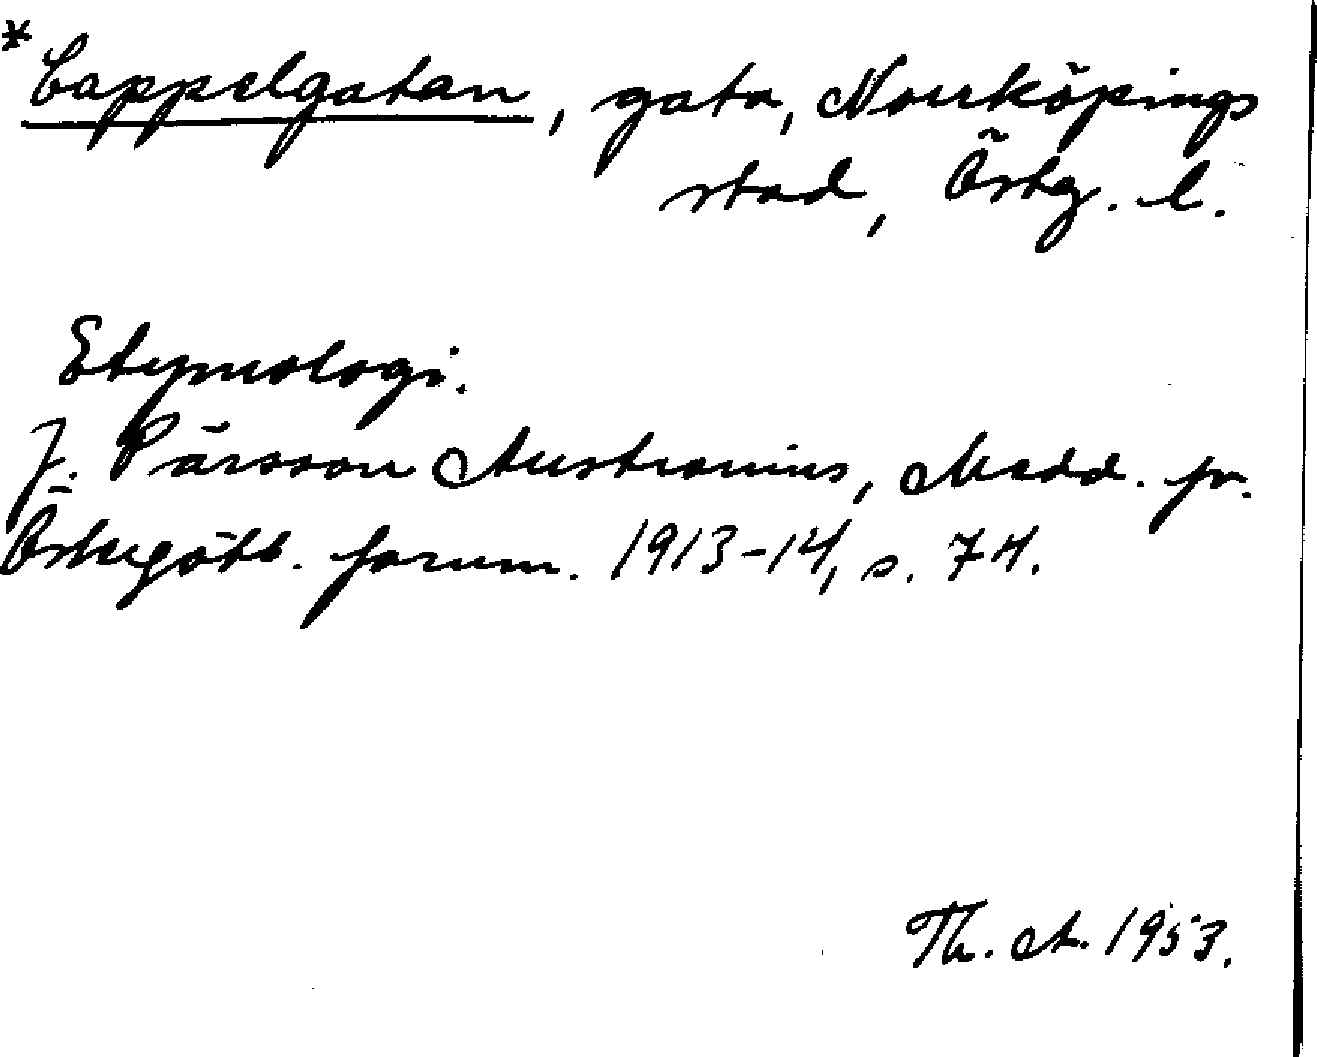 * Cappelgatan, gata, Norrköpings
stad, Östg. l.
Etymologi.
J. Pärsson Austranius, Medd. fr.
Östergötl. fornm. 1913-14, s. 74.
Th. A. 1953.